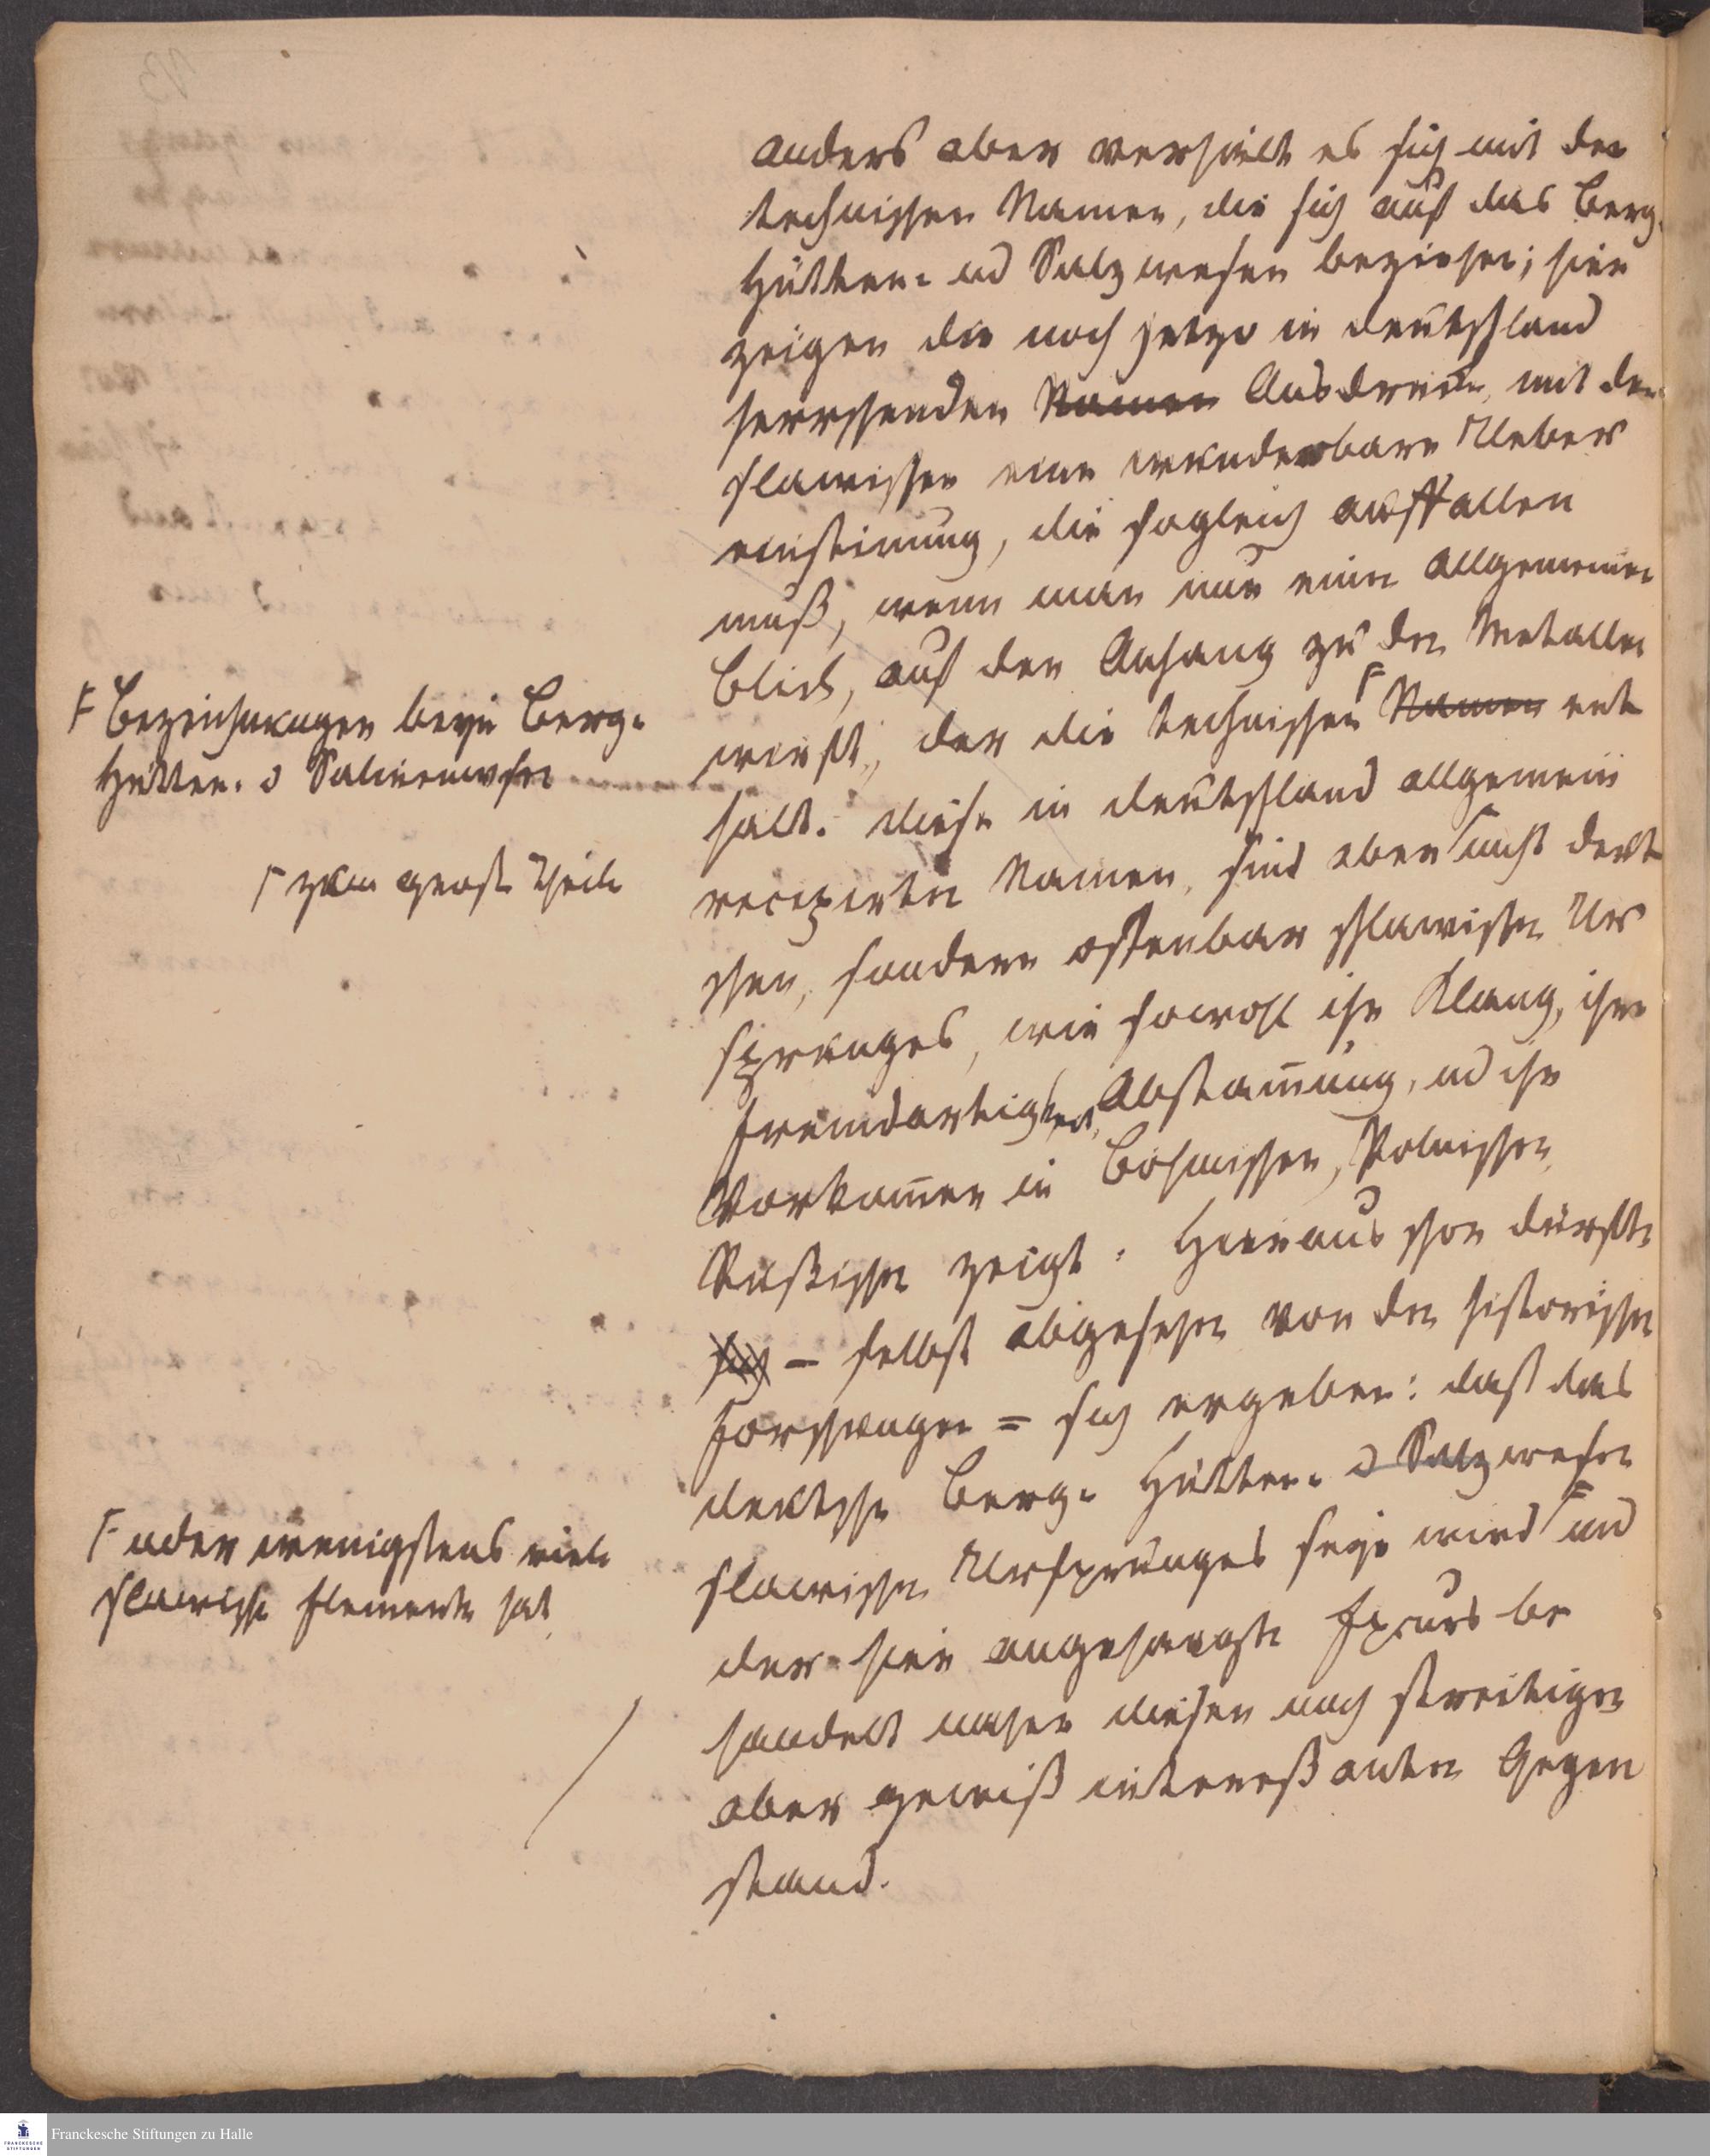 anders aber verhielt es sich mit den
technischen Namen, die sich auf das Berg-
Hütten- und Salzwesen beziehen; hier
zeigen die noch jetzo in deutschland
herrschenden Namen Ausdrücke, mit den
slawischen eine wunderbare Ueber
einstimung, die sogleich auffallen
muß, wenn man nur einen allgemeinen
Blick, auf den Anhang zu den Metallen
wirft, der die technischen F Namen ent
hält. diese in deutschland allgemein
recipirten Namen, sind aber Γ nicht deut
schen, sondern offenbar schlawischen Ur
sprunges, wie sowohl ihr Klang, ihre
fremdartigkeit, Abstamung, und ihr
Vorkomen in Böhmischen, Polnischen,
Rußischen zeigt. Hieraus schon dürfte
sich – selbst abgesehen von den historischen
Forschungen = sich ergeben: daß das
deutsche Berg- Hütten- u Salzwesen
slawischen Ursprunges seyn wird F und
der hier angehängte Excurs be
handelt näher diesen noch streitigen
aber gewiß interessanten Gegen
stand.
F Bezeichnungen beym Berg-
Hütten- u Salinenwesen
Γ zum großen Theile
F oder wenigstens viele
slawische Elemente hat.
Franckesche Stiftungen zu Halle
FRANCKESCHE
STIFTUNGEN